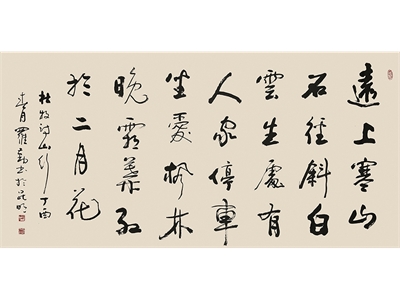 遠上寒山
石徑斜白
雲生處有
人家停車
坐愛楓林
晚霜葉紅
於二月花
杜牧詩山行 丁酉
春月羅書於昆明